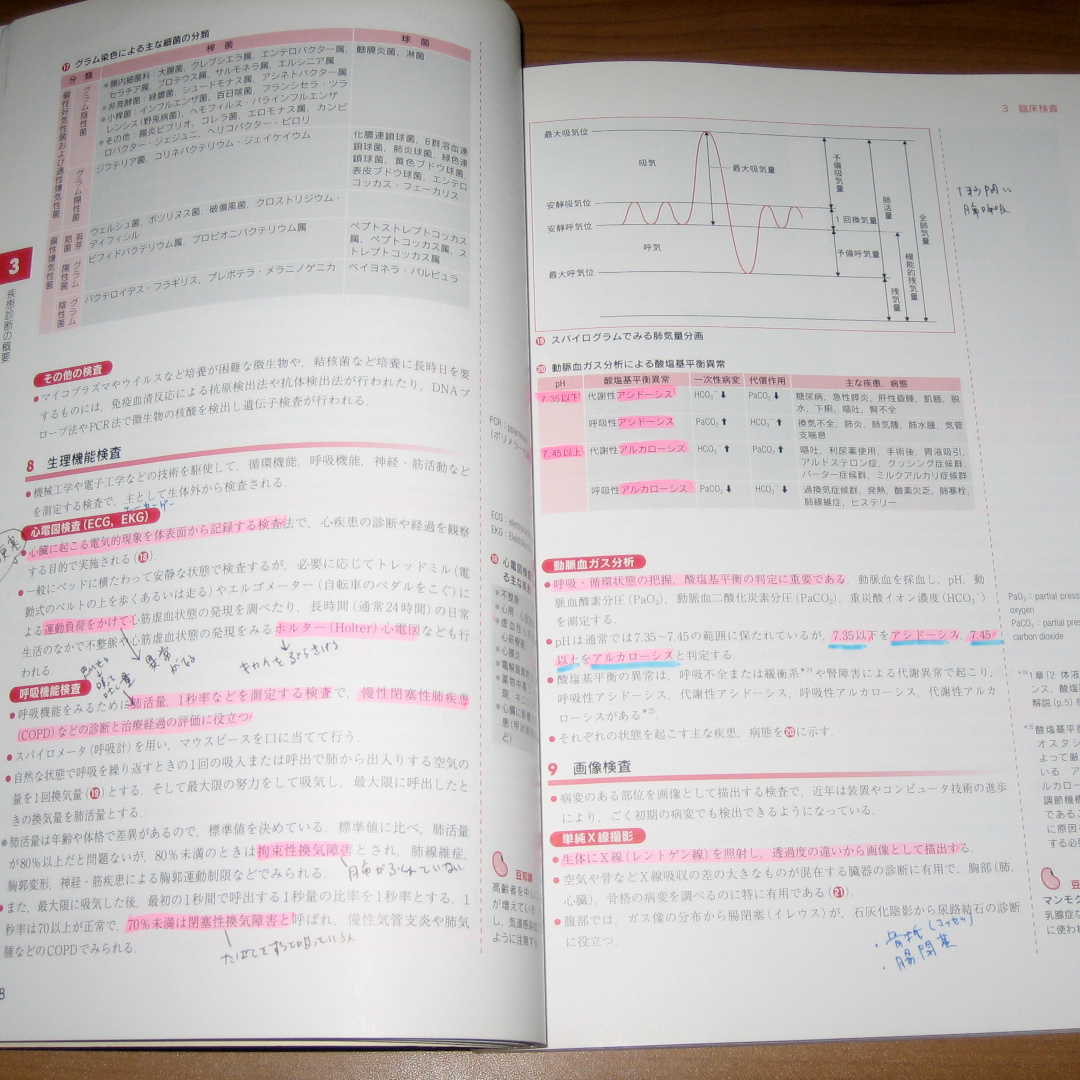 ⑰ グラム染色による主な細菌の分類
分類
桿菌
球菌
偏性好気性菌および通性嫌気性菌
グラム陰性菌
●腸内細菌科:大腸菌, クレブシエラ属, エンテロバクター属,
セラチア属, プロテウス属, サルモネラ属, エルシニア属
●非発酵菌:緑膿菌, シュードモナス属, アシネトバクター属
●小桿菌:インフルエンザ菌, 百日咳菌, フランシセラ・ツラ
レンシス(野兎病菌), ヘモフィルス・パラインフルエンザ
●その他:腸炎ビブリオ, コレラ菌, エロモナス属, カンピ
ロバクター・ジェジュニ, ヘリコバクター・ピロリ
髄膜炎菌, 淋菌
グラム陽性菌
ジフテリア菌, コリネバクテリウム・ジェイケイウム
化膿連鎖球菌, B群溶血連
鎖球菌, 肺炎球菌, 緑色連
鎖球菌, 黄色ブドウ球菌,
表皮ブドウ球菌, エンテロ
コッカス・フェーカリス
偏性嫌気性菌
有芽胞菌
ウェルシュ菌, ボツリヌス菌, 破傷風菌, クロストリジウム・
ディフィシル
グラム陽性菌
ビフィドバクテリウム属, プロピオニバクテリウム属
ペプトストレプトコッカス
属, ペプトコッカス属, ス
トレプトコッカス属
グラム陰性菌
バクテロイデス・フラギリス, プレボテラ・メラニノゲニカ
ベイヨネラ・パルビュラ
3
疾患診断の概要
その他の検査
●マイコプラズマやウイルスなど培養が困難な微生物や, 結核菌など培養に長時日を要
するものには, 免疫血清反応による抗原検出法や抗体検出法が行われたり, DNAプ
ローブ法やPCR法で微生物の核酸を検出し遺伝子検査が行われる.
8 生理機能検査
●機械工学や電子工学などの技術を駆使して, 循環機能, 呼吸機能, 神経・筋活動など
を測定する検査で, 主として生体外から検査される.
心電図検査(ECG, EKG)
●心臓に起こる電気的現象を体表面から記録する検査法で, 心疾患の診断や経過を観察
する目的で実施される(⑱).
●一般にベッドに横たわって安静な状態で検査するが, 必要に応じてトレッドミル(電
動式のベルトの上を歩くあるいは走る)やエルゴメーター(自転車のペダルをこぐ)に
よる運動負荷をかけて心筋虚血状態の発現を調べたり, 長時間(通常24時間)の日常
生活のなかで不整脈や心筋虚血状態の発現をみるホルター(Holter)心電図なども行
われる.
異常
がある
呼吸機能検査
●呼吸機能をみるために肺活量, 1秒率などを測定する検査で, 慢性閉塞性肺疾患
(COPD)などの診断と治療経過の評価に役立つ.
●スパイロメータ(呼吸計)を用い, マウスピースを口に当てて行う.
●自然な状態で呼吸を繰り返すときの1回の吸入または呼出で肺から出入りする空気の
量を1回換気量(⑲)とする. そして最大限の努力をして吸気し, 最大限に呼出したと
きの換気量を肺活量とする.
●肺活量は年齢や体格で差異があるので, 標準値を決めている. 標準値に比べ, 肺活量
が80%以上だと問題ないが, 80%未満のときは拘束性換気障害とされ, 肺線維症,
胸郭変形, 神経・筋疾患による胸郭運動制限などでみられる.
肺がふくれていない
●また, 最大に吸気した後, 最初の1秒間で呼出する1秒量の比率を1秒率とする. 1
秒率は70以上が正常で, 70%未満は閉塞性換気障害と呼ばれ, 慢性気管支炎や肺気
腫などのCOPDでみられる.
たばこをすって吸っている人
8
⑱ 心電図検査
●不整脈
豆知識
高齢者を中
が増えている
し, 気道感染
ように注意する
3 臨床検査
最大吸気位
安静吸気位
安静呼気位
最大呼気位
吸気
呼気
最大吸気量
予備吸気量
1回換気量
予備呼気量
残気量
肺活量
機能的残気量
全肺気量
⑲ スパイログラムでみる肺気量分画
⑳ 動脈血ガス分析による酸塩基平衡異常
pH 酸塩基平衡異常 一次性病変 代償作用 主な疾患, 病態
7.35以下 代謝性アシドーシス HCO₃⁻⬇ PaCO₂⬇ 糖尿病, 急性膵炎, 肝性昏睡, 飢餓, 脱
水, 下痢, 嘔吐, 腎不全
呼吸性アシドーシス PaCO₂⬆ HCO₃⁻⬆ 換気不全, 肺炎, 肺気腫, 肺水腫, 気管
支喘息
7.45以上 代謝性アルカローシス HCO₃⁻⬆ PaCO₂⬆ 嘔吐, 利尿薬使用, 手術後, 胃液吸引,
アルドステロン症, クッシング症候群,
バーター症候群, ミルクアルカリ症候群
呼吸性アルカローシス PaCO₂⬇ HCO₃⁻⬇ 過換気症候群, 発熱, 酸素欠乏, 肺塞栓,
肺線維症, ヒステリー
動脈血ガス分析
●呼吸・循環状態の把握, 酸塩基平衡の判定に重要である. 動脈血を採血し, pH, 動
脈血酸素分圧(PaO₂), 動脈血二酸化炭素分圧(PaCO₂), 重炭酸イオン濃度(HCO₃⁻)
を測定する.
●pHは通常では7.35~7.45の範囲に保たれているが, 7.35以下をアシドーシス, 7.45
以上をアルカローシスと判定する.
●酸塩基平衡の異常は, 呼吸不全または緩衝系*²⁴や腎障害による代謝異常で起こり,
呼吸性アシドーシス, 代謝性アシドーシス, 呼吸性アルカローシス, 代謝性アルカ
ローシスがある*²⁵.
●それぞれの状態を起こす主な疾患, 病態を⑳に示す.
9 画像検査
●病変のある部位を画像として描出する検査で, 近年は装置やコンピュータ技術の進歩
により, ごく初期の病変でも検出できるようになっている.
単純X線撮影
●生体にX線(レントゲン線)を照射し, 透過度の違いから画像として描出する.
●空気や骨などX線吸収の差の大きなものが混在する臓器の診断に有用で, 胸部(肺,
心臓), 骨格の病変を調べるのに特に有用である(㉑).
●腹部では, ガス像の分布から腸閉塞(イレウス)が, 石灰化陰影から尿路結石の診断
に役立つ.
・骨折(コッセツ)
・腸閉塞
PaO₂ : partial pressure
oxygen
PaCO₂ : partial pressure
carbon dioxide
*²⁴1章「2 体液
ンス, 酸塩
解説(p.5)
*²⁵酸塩基平衡
オスタシ
よって厳
いる. ア
ルカロー
調節機構
であるこ
に原因
する必要
豆
マンモグ
乳腺症な
に使われ